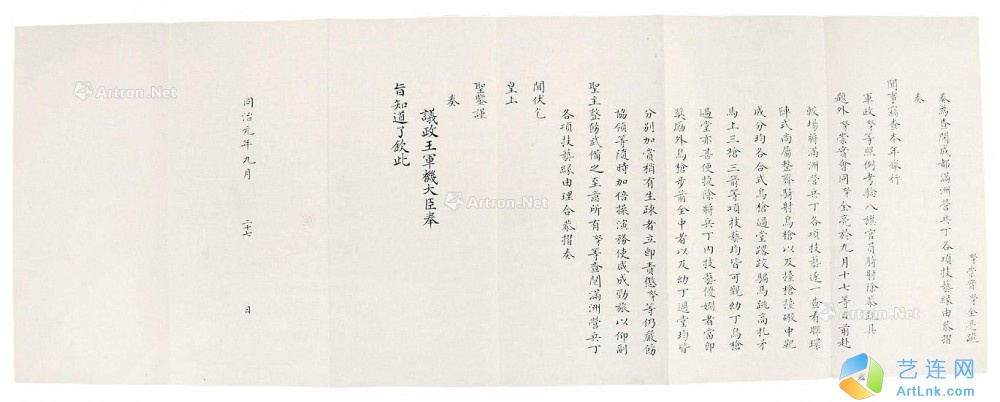 奴才崇實奴才全亮跪
奏為查閱成都滿洲營兵丁各項技藝緣由恭摺
奏
聞事竊查本年舉行
軍政奴才等照例考驗八旗官員騎射除恭疏具
題外奴才崇實會同奴才全亮於九月十七等日前赴
較場將滿洲營兵丁各項技藝逐一查看聯環
陣式尚屬整齊騎射鳥槍以及擡槍擡礮中靶
成分均各合式鳥槍過堂蹽跤騸馬跳高札矛
馬上三槍三箭等項技藝均皆可觀幼丁鳥槍
過堂亦甚便捷除將兵丁內技藝優嫻者當即
獎勵外鳥槍步箭全中者以及幼丁過堂均皆
分別加賞稍有生疎者立即責懲奴才等仍嚴飭
協領等隨時加倍操演務使咸成勁旅以仰副
聖主整飭武備之至意所有奴才等查閱滿洲營兵丁
各項技藝緣由理合恭摺奏
聞伏乞
皇上
聖鑒謹
奏
議政王軍機大臣奉
旨知道了欽此
同治元年九月 二十七 日
Artron.Net
Artron.Net
Artron.Net
Artron.Net
艺连网
ArtLnk.com